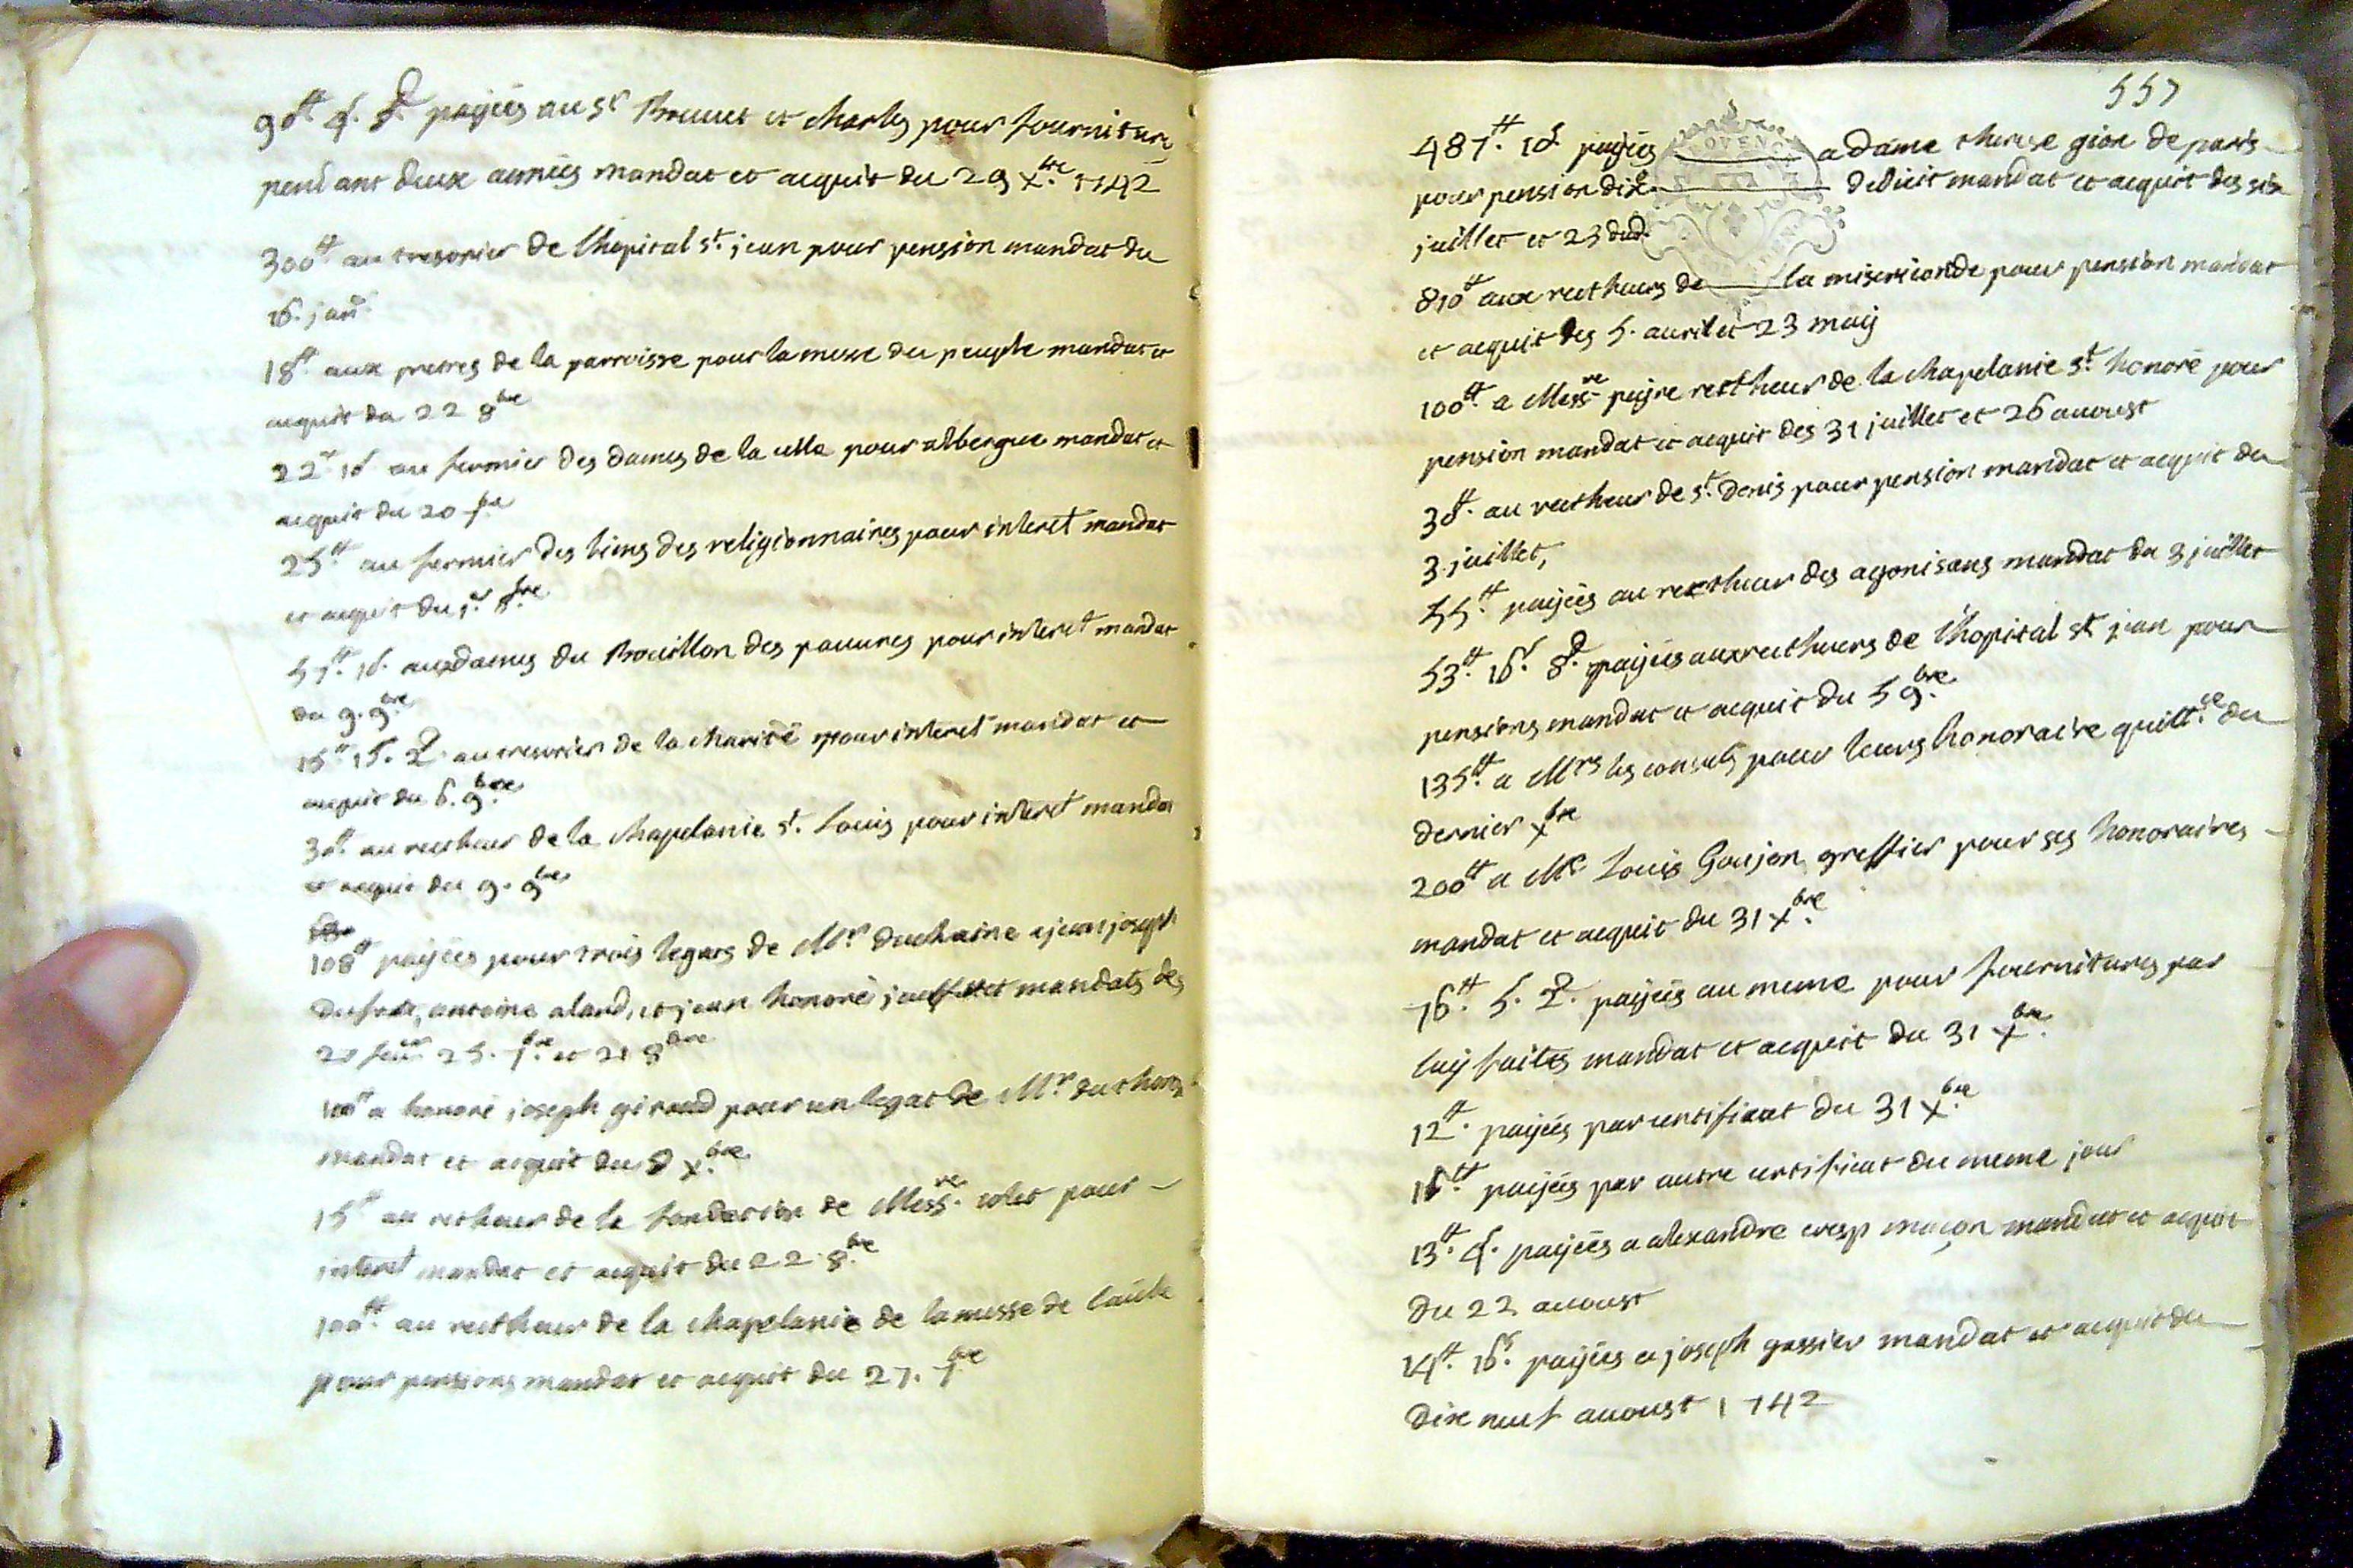 90tt 4s 8d payées au Sr Brunet et charles pour fourniture
pendant deux années mandat et acquit du 29 xbre 1742
300tt au tresorier de lhopital st. jean pour pension mandat du
16. janr
18tt aux pretres de la parroisse pour la messe du peuple mandat et
acquit du 22 8bre
22tt 10s au fermier des dames de la celle pour albergue mandat et
acquit du 20 7bre
25tt au fermier des biens des religionnaires pour interet mandat
et acquit du 8bre
57tt 10s aux dames du Bouillon des pauvres pour interet mandat
du 9. 9bre
15s 2d au tresorier de la charité pour interet mandat et
acquit du 6. 9bre
30tt au recteur de la chapelanie st. Louis pour interet mandat
et acquit du 9. 9bre
108tt payées pour trois legats de Mr duchaine a jean joseph
antoine alard, et jean honoré mandats des
25. 7bre et 21 8bre
100tt a honoré joseph giraud pour un legat de Mr duchaine
mandat et acquit du 9 xbre
15tt au recteur de la fondation de Messre colet pour
interet mandat et acquit du 22 8bre
100tt au recteur de la chapelanie de la messe de laube
pour pensions mandat et acquit du 27. 7bre
557
487tt 10s payées a dame therese giox de paris
pour pension deduit mandat et acquit des six
juillet et 23 dud.
810tt aux recteurs de la misericorde pour pension mandat
et acquit des 5. avril et 23 may
100tt a Messre peyre recteur de la chapelanie st. honoré pour
pension mandat et acquit des 31 juillet et 26 auoust
30tt au recteur de st. denis pour pension mandat et acquit du
3. juillet,
55tt payées au recteur des agonisans mandat du 3 juillet
53tt 16s 8d payées aux recteurs de lhopital st jean pour
pensions mandat et acquit du 5 9bre
135tt a Mrs les consuls pour leurs honoraire quittce du
dernier xbre
200tt a Me Louis Goujon greffier pour ses honoraires
mandat et acquit du 31 xbre
76tt 5s 2d payées au meme pour fournitures par
luy faites mandat et acquit du 31 xbre
12tt payées par certificat du 31 xbre
payées par autre certificat du meme jour
13tt 4s payées a alexandre cresp maçon mandat et acquit
du 22 auoust
14tt 16s payées a joseph gassier mandat et acquit du
dix neuf auoust 1742